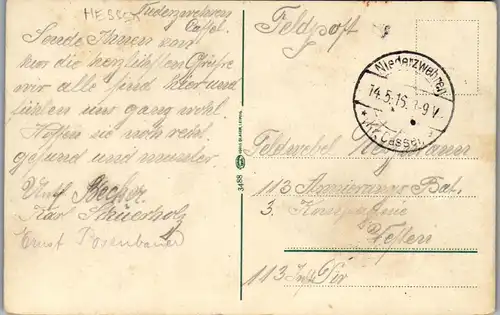 HESSEN
Niederzwehren
Cassel.
Sende Ihnen von
hier die herzlichsten Grüße
wir alle sind hier und
fühlen uns ganz wohl
Hoffen sie noch recht
gesund und munter.
Becher
Karl Scheuerholz
Ernst Rosenbauer
3488
Feldpost
Niederzwehren
14.5.16. 8-9 V.
* (Kr. Cassel) *
Feldwebel
113 Armierungs Bat.
3. Kompagnie
113